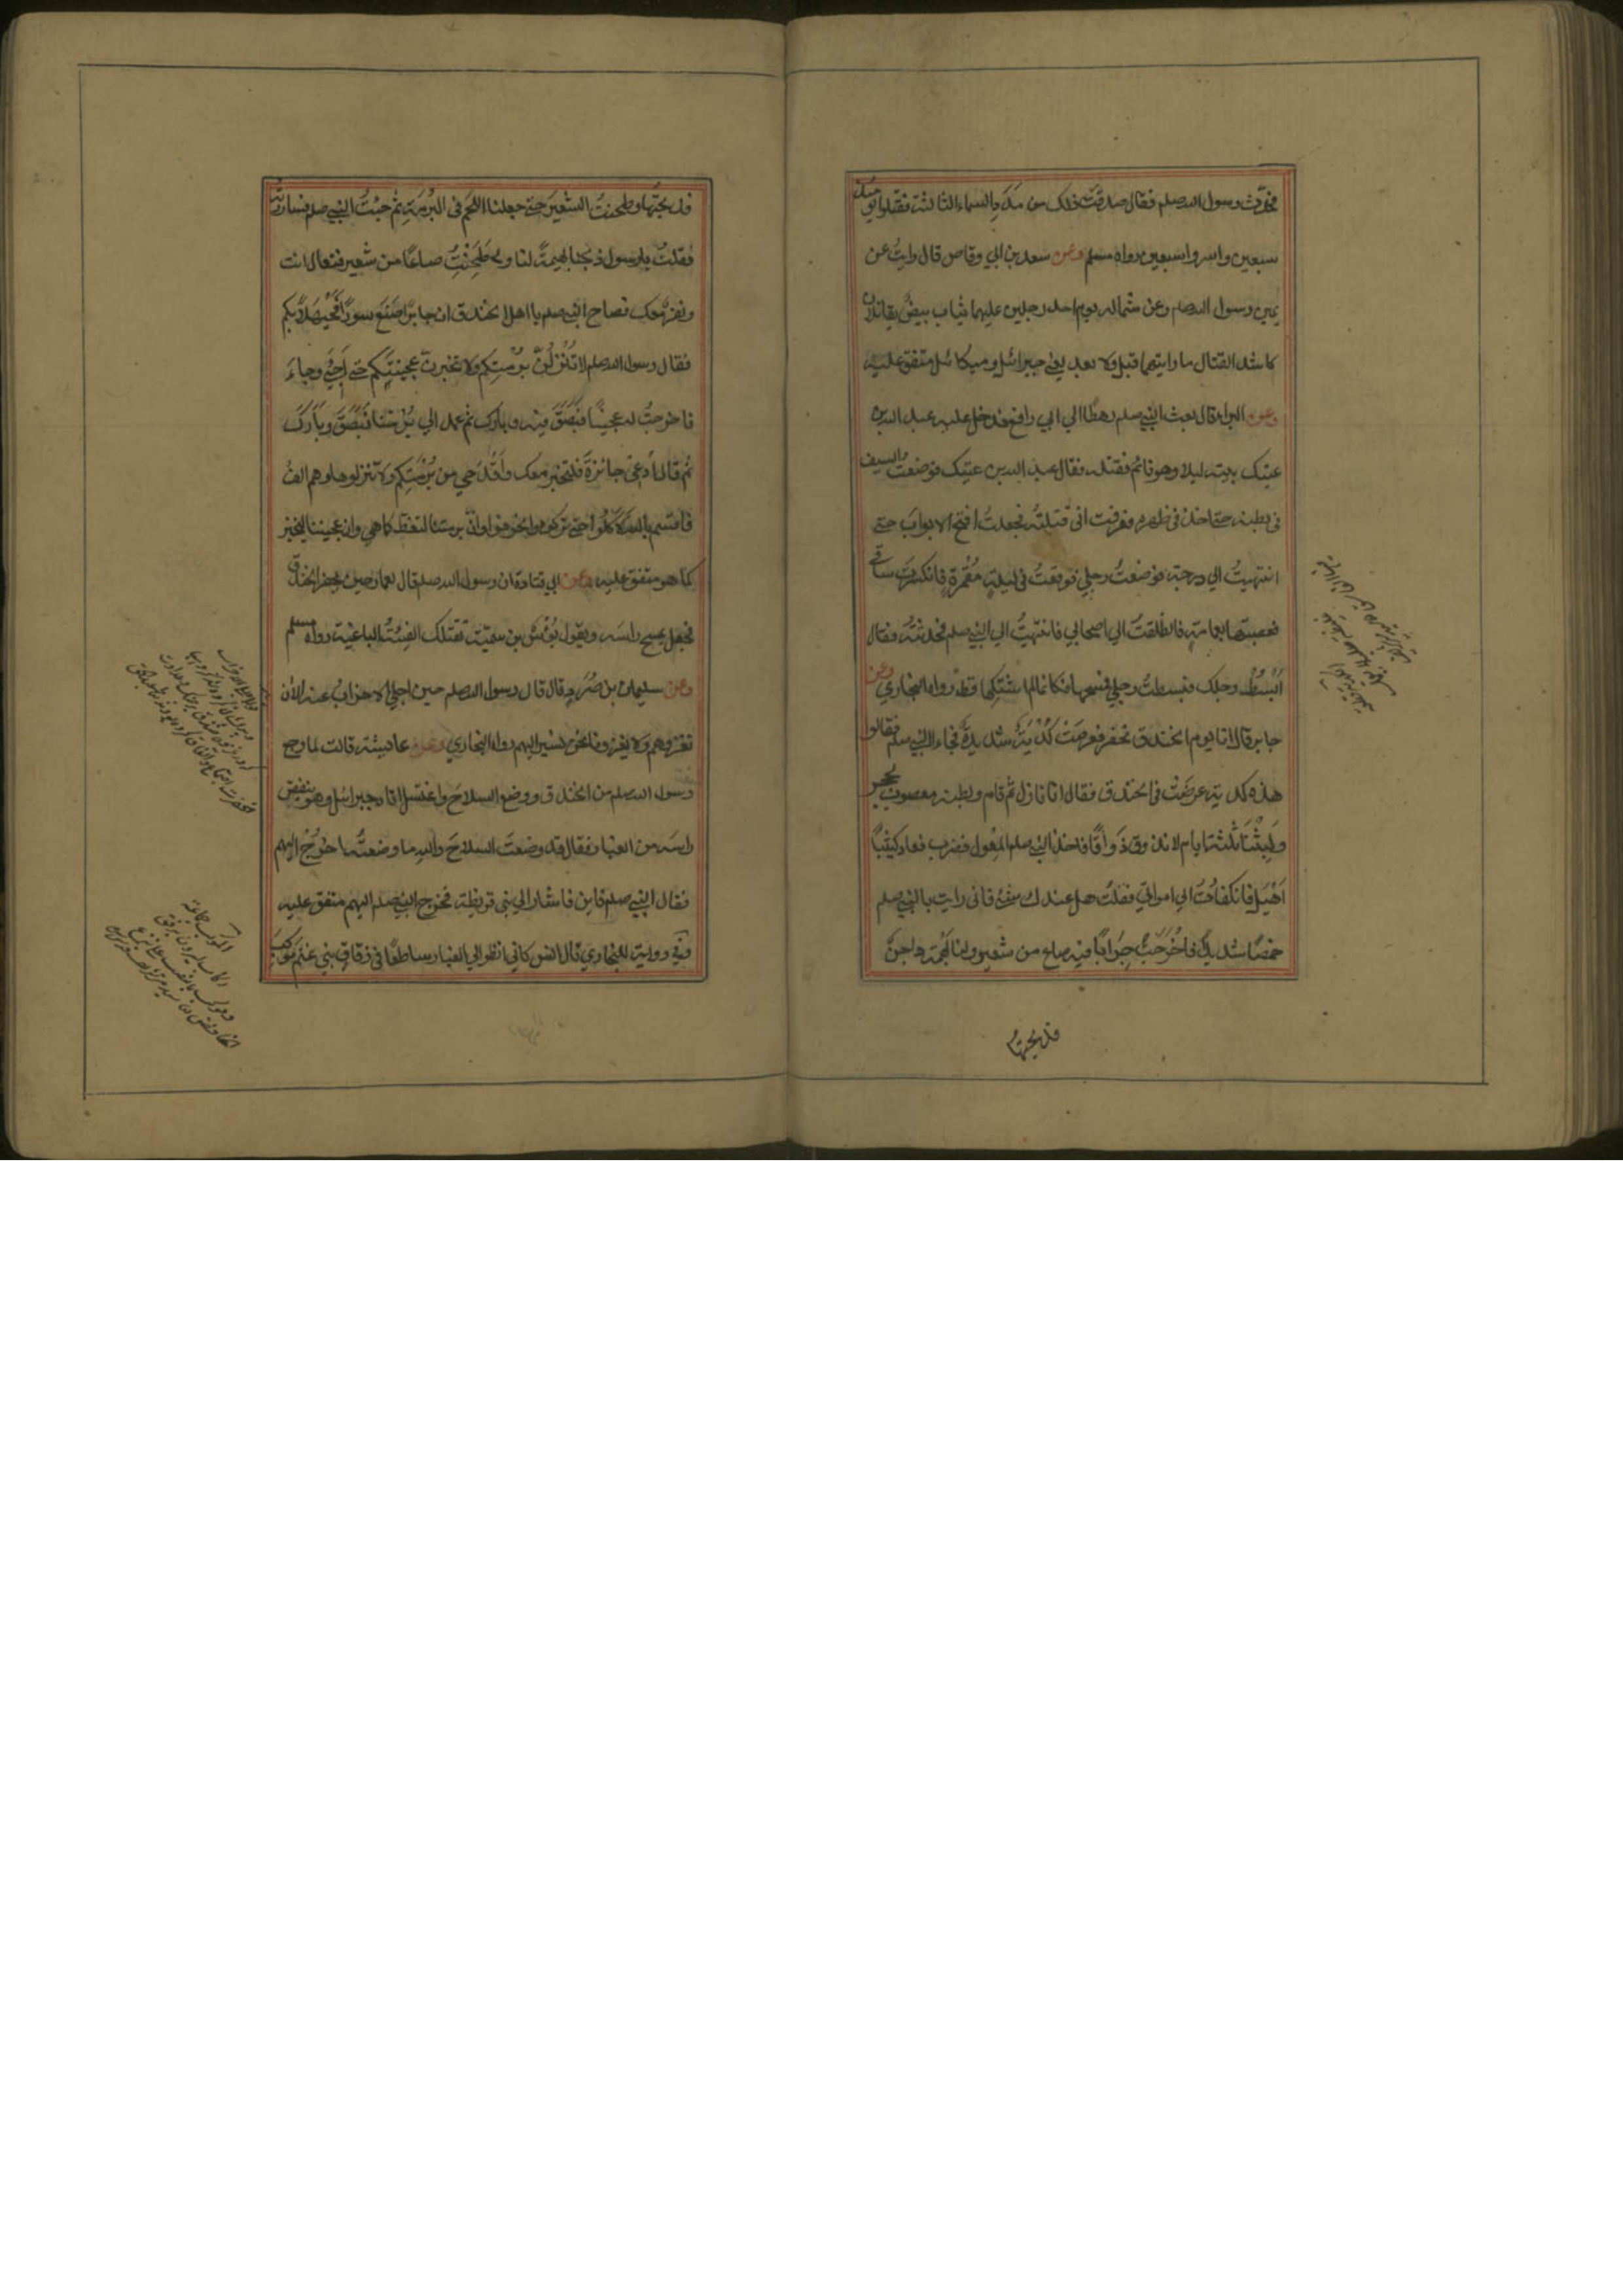 فحدث رسول الله صلعم فقال صدقت ذلك من مدد السماء الثالثة فقتلوا يومئذ
سبعين واسروا سبعين رواه مسلم وعن سعد بن ابي وقاص قال رايت عن
يمين رسول الله صلعم وعن شماله يوم احد رجلين عليهما ثياب بيض يقاتلان
كاشد القتال ما رايتهما قبل ولا بعد يعني جبرائيل وميكائيل متفق عليه
وعن البراء قال بعث النبي صلعم رهطا الي ابي رافع فدخل عليه عبد الله بن
عتيك بيته ليلا وهو نائم فقتله فقال عبد الله بن عتيك فوضعت السيف
في بطنه حتي اخذ في ظهره فعرفت اني قتلته فجعلت افتح الابواب حتي
انتهيت الي درجة فوضعت رجلي فوقعت في ليلة مقمرة فانكسرت ساقي
فعصبتها بعمامة فانطلقت الي اصحابي فانتهيت الي النبي صلعم فحدثته فقال
ابسط رجلك فبسطت رجلي فمسحها فكانما لم اشتكها قط رواه البخاري وعن
جابر قال انا يوم الخندق نحفر فعرضت كدية شديدة فجاءا النبي صلعم فقالوا
هذه كدية عرضت في الخندق فقال انا نازل ثم قام وبطنه معصوب بحجر
ولبثنا ثلثة ايام لا نذوق ذواقا فاخذ النبي صلعم المعول فضرب فعاد كثيبا
اهيل فانكفات الي امراتي فقلت هل عندك شيء فاني رايت بالنبي صلعم
خمصا شديدا فاخرجت جرابا فيه صاع من شعير ولنا بهمة داجن
فذبحتها
فذبحتها وطحنت الشعير حتي جعلنا اللحم في البرمة ثم جئت النبي صلعم فساررته
فقلت يا رسول ذبحنا بهيمة لنا وطحنت صاعا من شعير فتعال انت
ونفر معك فصاح النبي صلعم يا اهل الخندق ان جابرا صنع سورا فحيهلا بكم
فقال رسول الله صلعم لا تنزلن برمتكم ولا تخبزن عجينكم حتي اجيء وجاء
فاخرجت له عجينا فبصق فيه وبارك ثم عمد الي برمتنا فبصق وبارك
ثم قال ادعي خابزة فلتخبز معك واقدحي من برمتكم ولا تنزلوها وهم الف
فاقسم بالله لاكلوا حتي تركوه وانحرفوا وان برمتنا لتغط كما هي وان عجيننا ليخبز
كما هو متفق عليه وعن ابي قتادة ان رسول الله صلعم قال لعمار حين يحفر الخندق
فجعل يمسح راسه ويقول بؤس بن سمية تقتلك الفئة الباغية رواه مسلم
وعن سليمان بن صرد قال قال رسول الله صلعم حين اجلي الاحزاب عنه الآن
نغزوهم ولا يغزونا نحن نسير اليهم رواه البخاري وعن عايشة قالت لما رجع
رسول الله صلعم من الخندق ووضع السلاح واغتسل اتاه جبرائيل وهو ينفض
راسه من الغبار فقال قد وضعت السلاح والله ما وضعته اخرج اليهم
فقال النبي صلعم فاين فاشار الي بني قريظة فخرج النبي صلعم اليهم متفق عليه
وفي رواية للبخاري قال انس كاني انظر الي الغبار ساطعا في زقاق بني غنم موكب